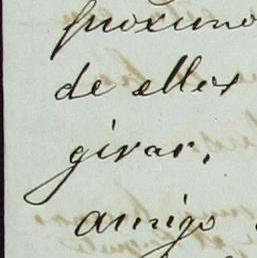 proximo
de elles
girar,
amigo